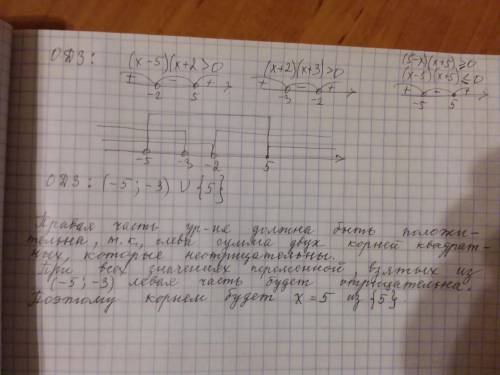 ОДЗ:
(x-5)(x+2>0 (x+2)(x+3)>0 (5-x)(x+5)≥0
(x-5)(x+5)≤0
+ - + + - + + - +
-2 5 -3 -2 -5 5
-5 -3 -2 5
ОДЗ: (-5; -3) ∪ {5}
Правая часть ур-ия должна быть положи-
тельна, т.к., слева сумма двух корней квадрат-
ных, которые неотрицательны.
При всех значениях переменной, взятых из
(-5; -3) левая часть будет отрицательна.
Поэтому корнем будет x = 5 из {5}